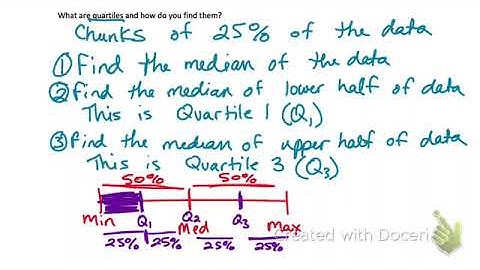 What are quartiles and how do you find them?
Chunks of 25% of the data
① Find the median of the data
② Find the median of lower half of data
This is Quartile 1 (Q₁)
③ Find the median of upper half of data
This is Quartile 3 (Q₃)
50% 50%
Min Q₁ Q₂ Q₃ Max
Med
25% 25% 25% 25%
Created with Doceri